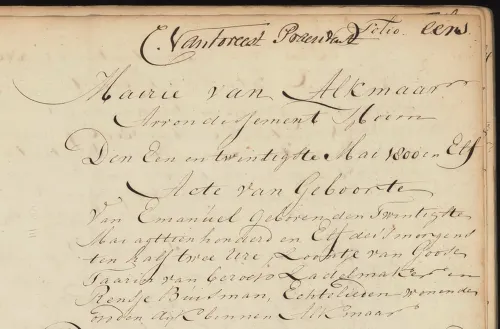 C. Vanforeest Folio. eers
Mairie van Alkmaar
Arrondissement Hoorn
Den Een en twintigste Mai 1800 en Elf
Acte van Geboorte
Van Emanuël geboren den Twintigste
Mai agttten honderd en Elf des smorgens
ten half twee Ure, Zoontje van
van beroep Zadelmaker en
Buisman, Echtelieden wonende
binnen Alkmaar